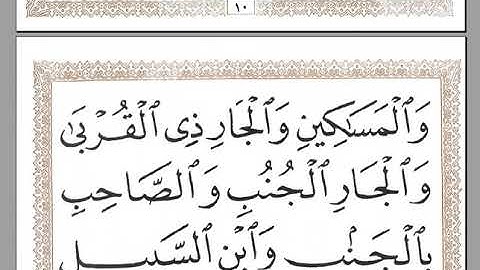 ١٠
وَٱلْمَسَٰكِينِ وَٱلْجَارِ ذِى ٱلْقُرْبَىٰ
وَٱلْجَارِ ٱلْجُنُبِ وَٱلصَّاحِبِ
بِٱلْجَنۢبِ وَٱبْنِ ٱلسَّبِيلِ